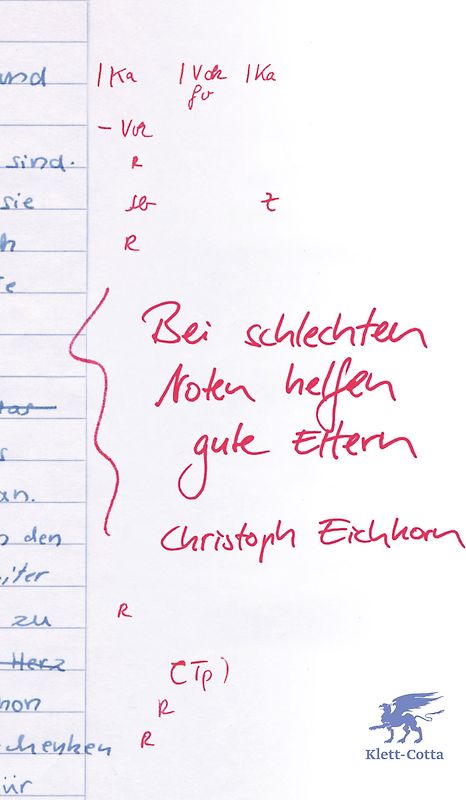 und |Ka |Vok |Ka
gr
- Vok
sind. R
sie sb Z
h R
te
Bei schlechten
Noten helfen
gute Eltern
s
an.
Christoph Eichhorn
den
iter
zu R
Herz (Tp)
hon R
chenken R
ür
Klett-Cotta